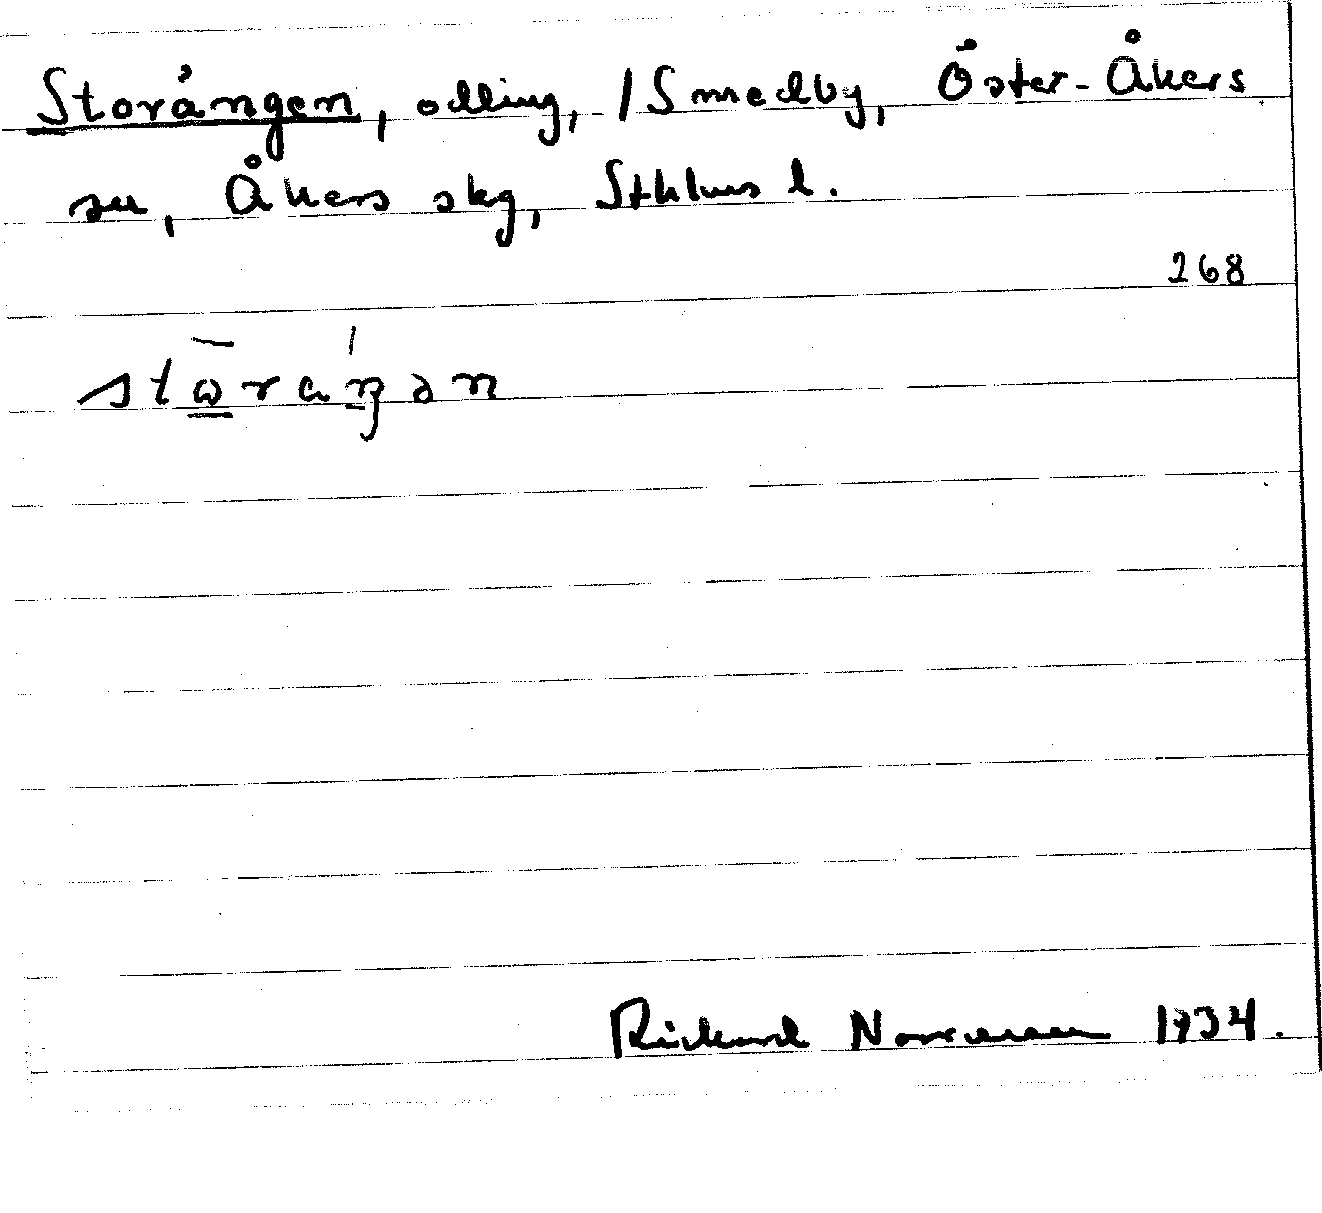 Storängen, odling, /Smedby, Öster-Åkers
sn, Åkers skg, Sthlms l.
268
stωraŋən
Rickard 1934.